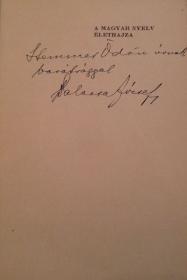 A MAGYAR NYELV
ÉLETRAJZA
Stemmer Ödön úrnak
barátsággal
Balassa József